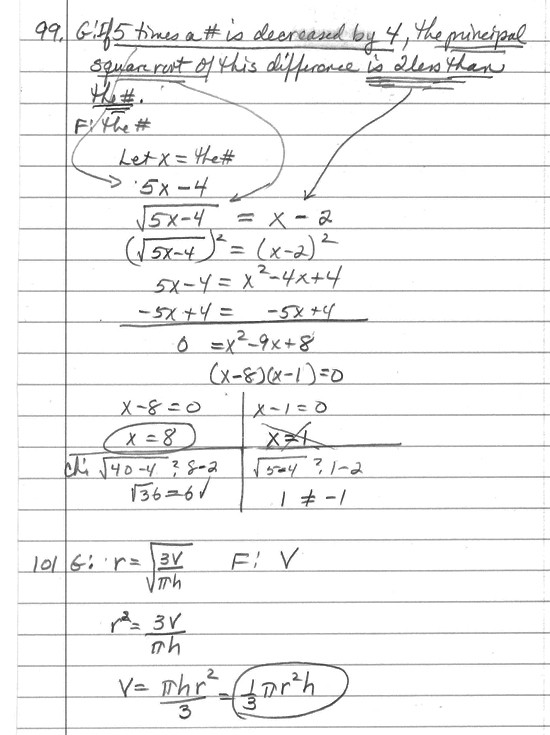 99. G: If 5 times a # is decreased by 4, the principal
square root of this difference is 2 less than
the #.
F: the #
Let x = the #
5x - 4
√5x-4 = x - 2
(√5x-4)² = (x-2)²
5x-4 = x²-4x+4
-5x+4 = -5x+4
0 = x²-9x+8
(x-8)(x-1)=0
x-8=0 x-1=0
x=8 x=1
ch: √40-4 ? 8-2 √5-4 ? 1-2
√36=6✓ 1 ≠ -1
101 G: r = √3V/πh F: V
r² = 3V/πh
V = πhr²/3 = 1/3 πr²h